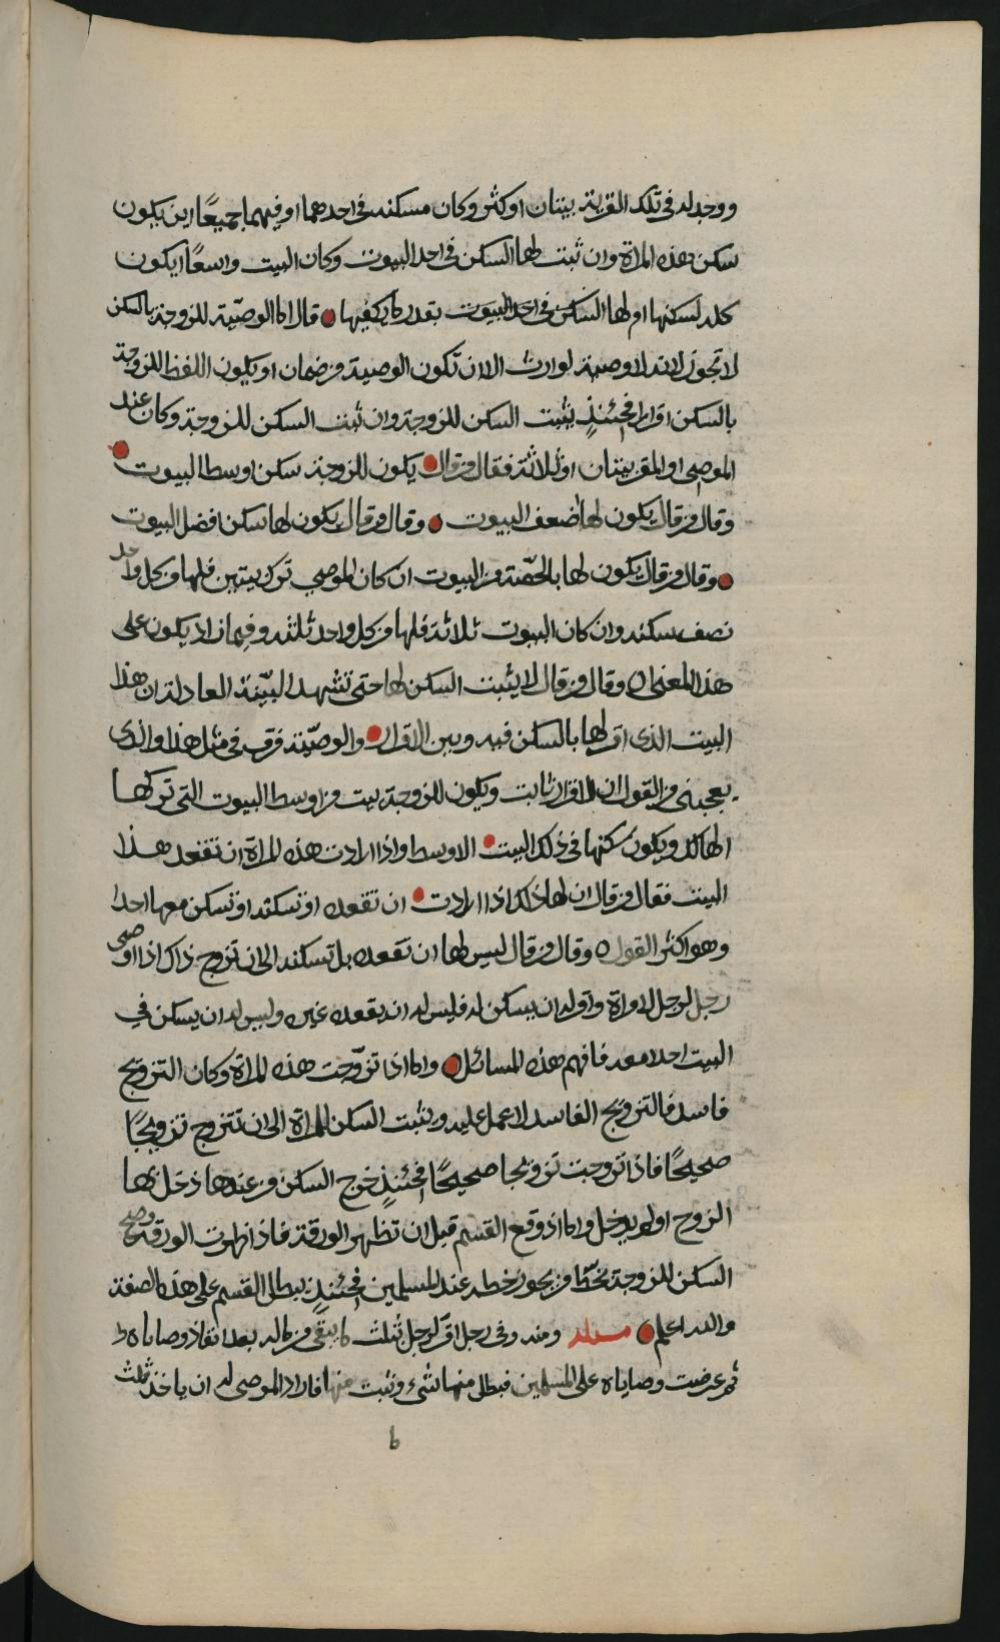 ووجد له في تلك القرية بيتان او كثر وكان مسكنه في احدهما او فيهما جميعًا اين يكون
سكن هذه المراة وان ثبت لها السكن في احد البيوت وكان البيت واسعًا ايكون
كله لسكنها ام لها السكن في احد البيوت بقدر ما يكفيها قال اما الوصيّة للزوجة بالسكن
لا تجوز لانه لا وصية لوارث الا ان تكون الوصية من ضمان او يكون اللفظ للزوجة
بالسكن اقرارا فحينئذٍ يثبت السكن للزوجة وان ثبت السكن للزوجة وكان عند
الموصي او المقر بيتان او ثلاثة فقال من قال يكون للزوجة سكن اوسط البيوت
وقال من قال يكون لها اضعف البيوت وقال من قال يكون لها سكن افضل البيوت
وقال من قال يكون لها بالحصّة من البيوت ان كان الموصي ترك بيتين فلها من كل واحد
نصف سكنه وان كان البيوت ثلاثة فلها من كل واحد ثلثه وفيما زاد يكون على
هذا المعنى وقال من قال لا يثبت السكن لها حتى تشهد البيّنة العادلة ان هذا
البيت الذي اقر لها بالسكن فيه وبين الاقرار والوصيّة فرق في مثل هذا والذي
يعجبني من القول ان الاقرار ثابت ويكون للزوجة بيت من اوسط البيوت التي تركها
الهالك ويكون سكنها في ذلك البيت الاوسط واذا ارادت هذه المراة ان تقعد هذا
البيت فقال من قال ان لها ذلك اذا ارادت ان تقعده او تسكنه او تسكن معها احدا
وهو اكثر القول وقال من قال ليس لها ان تقعده بل تسكنه الى ان تزوج ذاك اذا اوصى
رجل لرجل او امراة واقر له ان يسكن له فليس له ان يقعده غيره وليس له ان يسكن في
البيت احدا معه فافهم هذه المسائل واما اذا تزوّجت هذه المراة وكان التزويج
فاسد فالتزويج الفاسد لا عمل عليه ويثبت السكن للمراة الى ان تتزوج تزويجًا
صحيحًا فاذا تزوجت تزويجا صحيحًا فحينئذٍ خرج السكن من عندها دخل بها
الزوج او لم يدخل واما اذ وقع القسم قبل ان تظهر الورقة فاذا ظهرت الورقة وصح
السكن للزوجة بخطّ من يجوز خطه عند المسلمين فحينئذٍ يبطل القسم على هذه الصفة
والله اعلم مسئلة ومنه وفي رجل اقرّ لرجل بثلث ما يبقى من ماله بعد انفاذ وصاياه
ثم عرضت وصاياه على المسلمين فبطل منها شيء وثبت منها فاراد الموصى له ان ياخذ ثلث